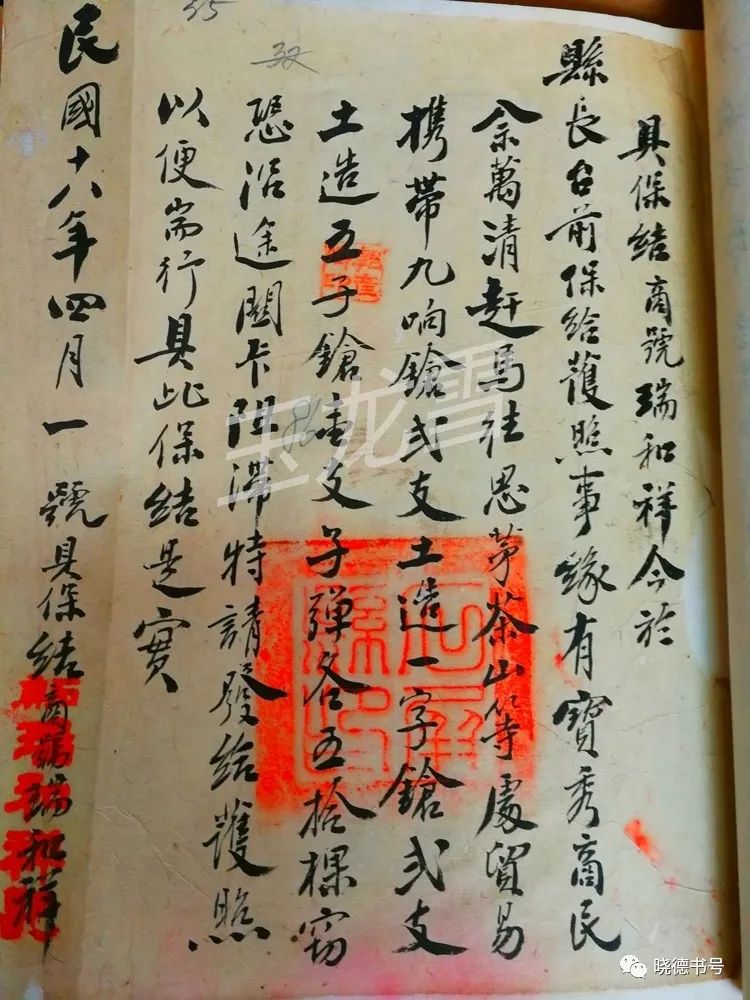 具保结商號瑞和祥今於
縣長台前保给護照事緣有寶秀商民
余萬清赶馬往思茅茶山等處貿易
携帶九响鎗弍支土造一字鎗弍支
土造五子鎗壹支子弹各五拾棵窃
恐沿途關卡阻滞特請發给護照
以便耑行具此保结是實
民國十八年四月一號具保结商號瑞和祥
35
玉龙雪
晓德书号